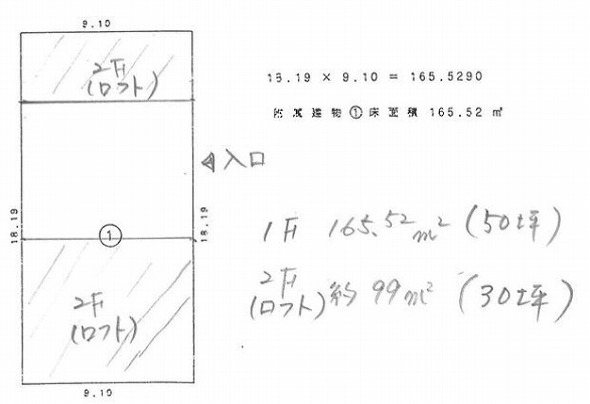 9.10
2F
(ロフト)
18.19 × 9.10 = 165.5290
附属建物①床面積 165.52 ㎡
入口
18.19
18.19
①
1F 165.52m² (50坪)
2F
(ロフト) 約99m² (30坪)
2F
(ロフト)
9.10